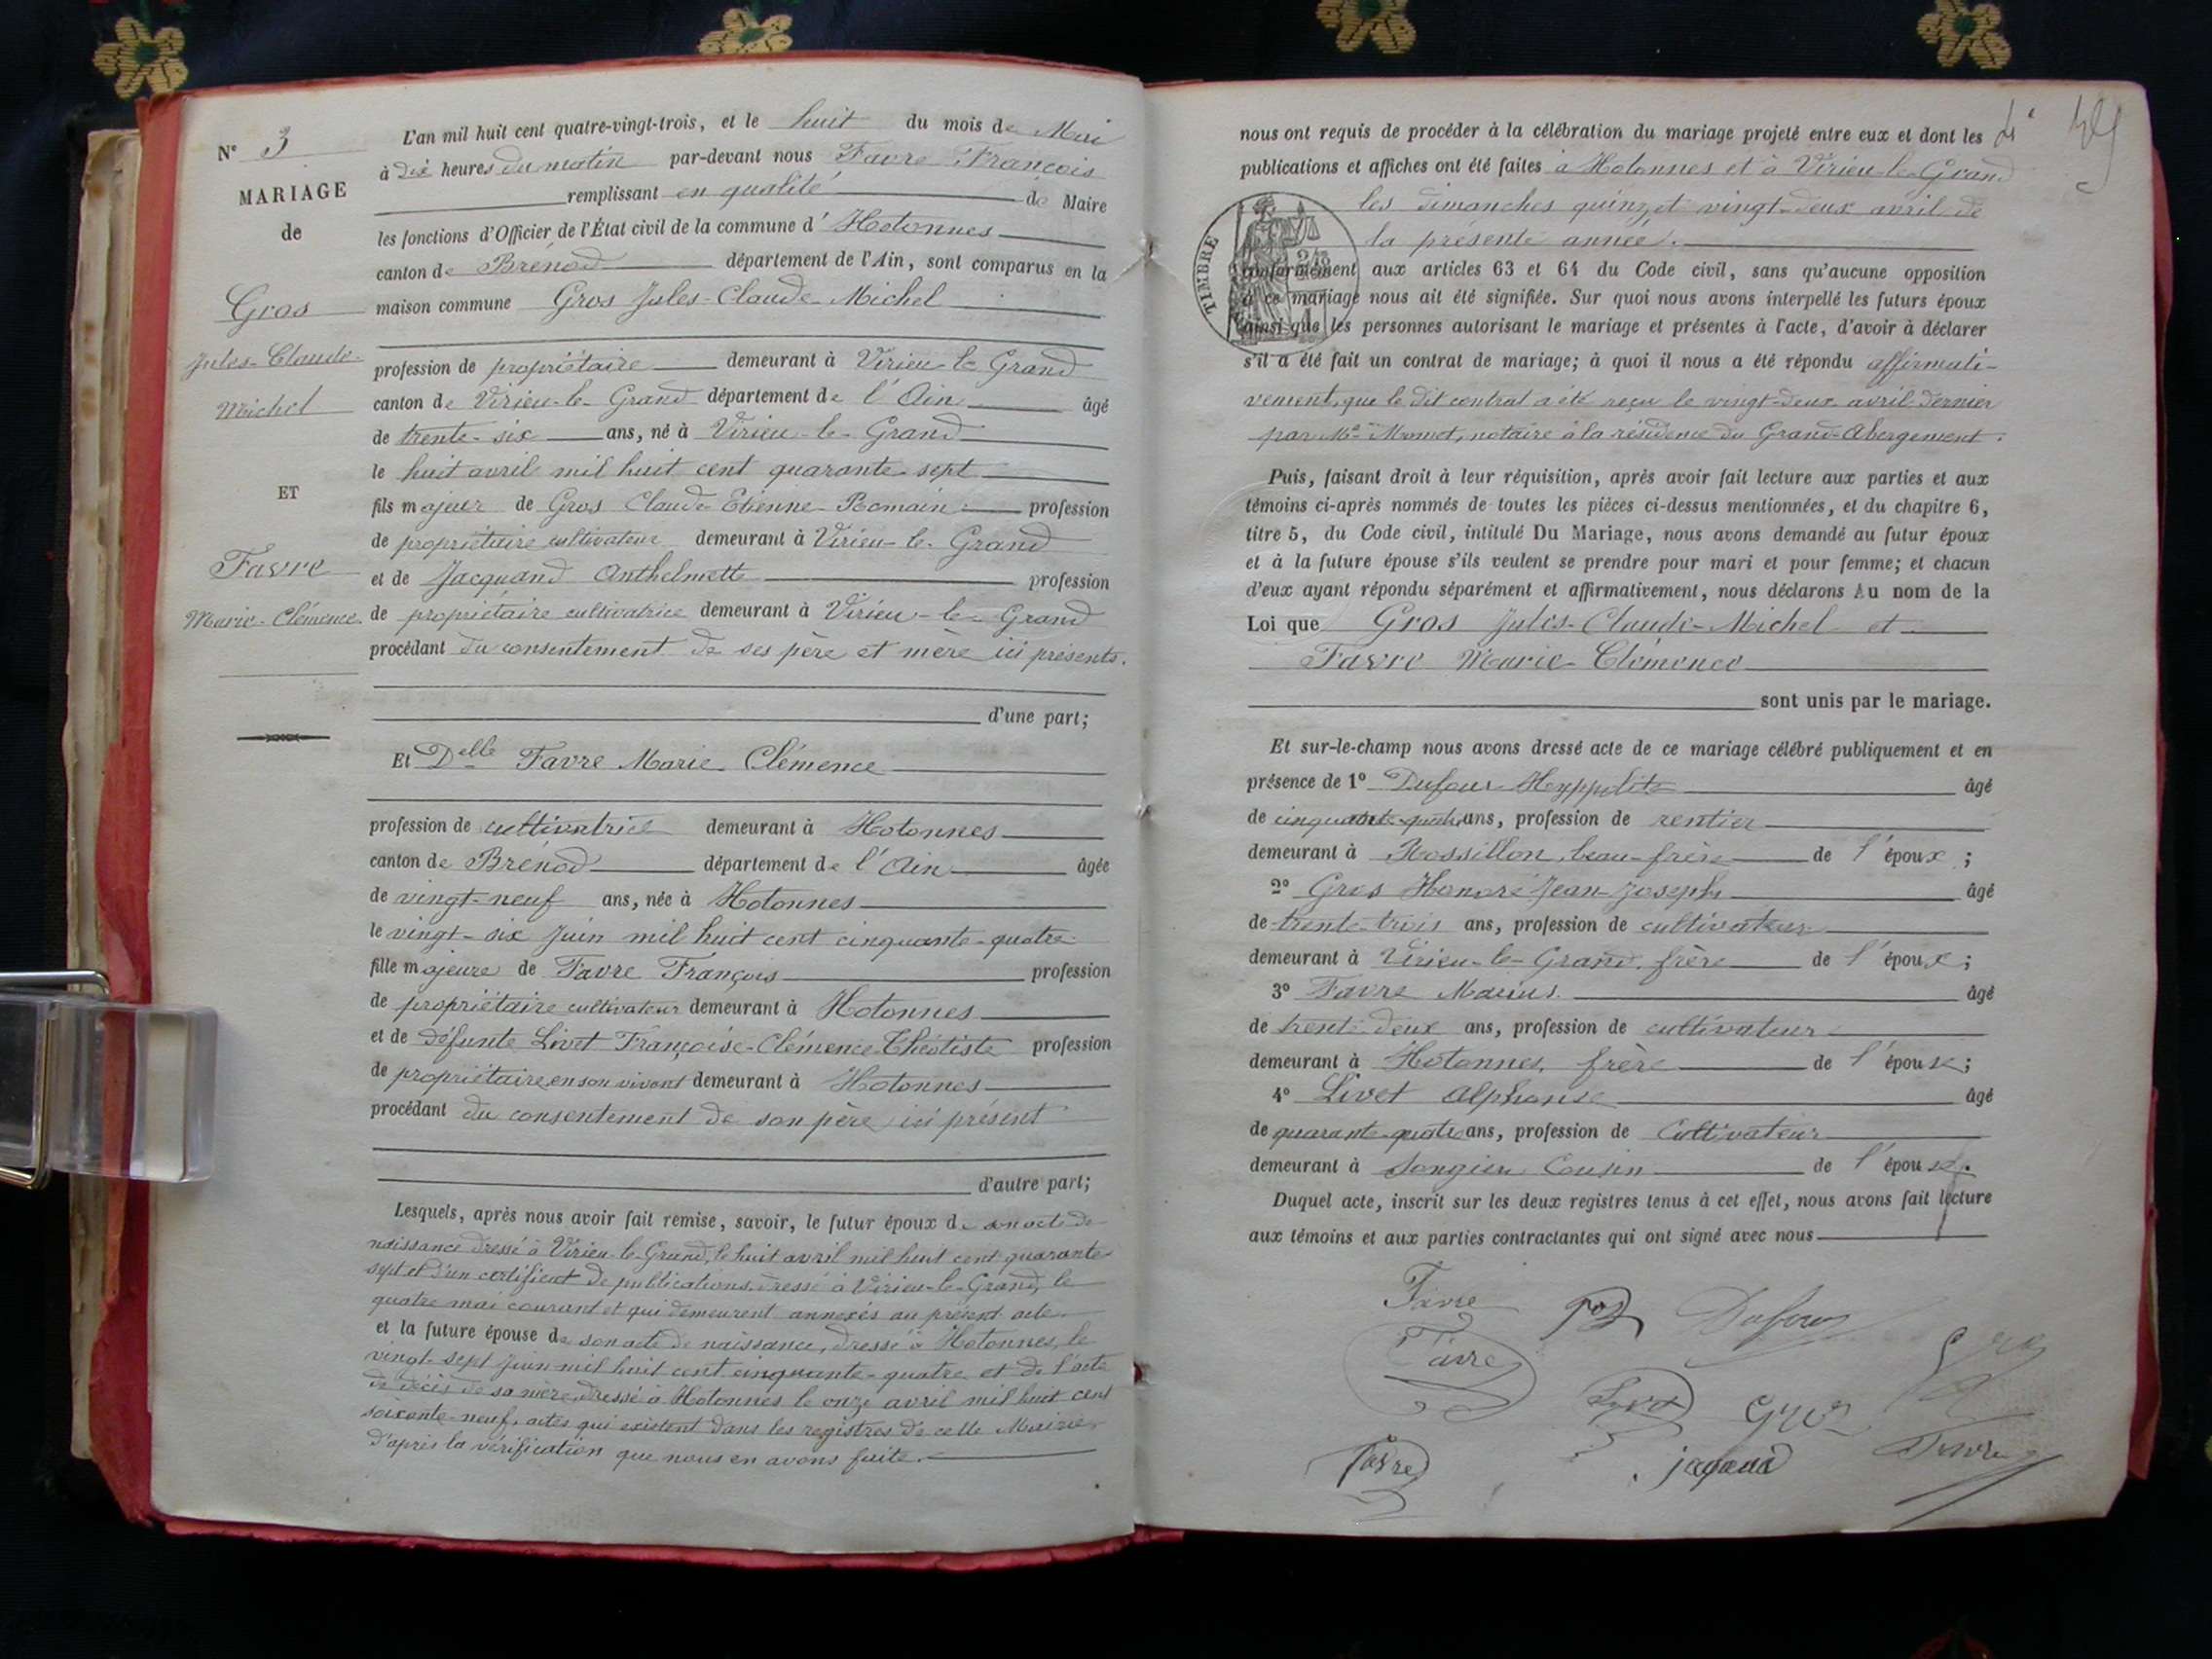 N° 3
MARIAGE
de
Gros
Jules-Claude-
Michel
ET
Favre
Marie-Clémence.
L'an mil huit cent quatre-vingt-trois, et le huit du mois de Mai
à dix heures du matin par-devant nous Favre François
remplissant en qualité de Maire
les fonctions d'Officier de l'État civil de la commune d' Hotonnes
canton de Brénod département de l'Ain, sont comparus en la
maison commune Gros Jules-Claude-Michel
profession de propriétaire demeurant à Virieu-le-Grand
canton de Virieu-le-Grand département de l'Ain âgé
de trente-six ans, né à Virieu-le-Grand
le huit avril mil huit cent quarante-sept
fils majeur de Gros Claude Etienne-Romain profession
de propriétaire cultivateur demeurant à Virieu-le-Grand
et de Jacquand Anthelmette profession
de propriétaire cultivatrice demeurant à Virieu-le-Grand
procédant du consentement de ses père et mère ici présents.
d'une part;
Et Delle Favre Marie Clémence
profession de cultivatrice demeurant à Hotonnes
canton de Brénod département de l'Ain âgée
de vingt-neuf ans, née à Hotonnes
le vingt-six Juin mil huit cent cinquante-quatre
fille majeure de Favre François profession
de propriétaire cultivateur demeurant à Hotonnes
et de défunte Livet Françoise-Clémence-Théotiste profession
de propriétaire en son vivant demeurant à Hotonnes
procédant du consentement de son père ici présent
d'autre part;
Lesquels, après nous avoir fait remise, savoir, le futur époux de son acte de
naissance dressé à Virieu-le-Grand, le huit avril mil huit cent quarante
sept et d'un certificat de publications, dressé à Virieu-le-Grand, le
quatre mai courant et qui demeurent annexés au présent acte.
et la future épouse de son acte de naissance, dressé à Hotonnes, le
vingt-sept Juin mil huit cent cinquante-quatre et de l'acte
de décès de sa mère, dressé à Hotonnes le onze avril mil huit cent
soixante-neuf, actes qui existent dans les registres de cette Mairie,
d'après la vérification que nous en avons faite.
nous ont requis de procéder à la célébration du mariage projeté entre eux et dont les
publications et affiches ont été faites à Hotonnes et à Virieu-le-Grand
les dimanches quinze et vingt-deux avril de
la présente année.
TIMBRE
conformément aux articles 63 et 64 du Code civil, sans qu'aucune opposition
à ce mariage nous ait été signifiée. Sur quoi nous avons interpellé les futurs époux
ainsi que les personnes autorisant le mariage et présentes à l'acte, d'avoir à déclarer
s'il a été fait un contrat de mariage; à quoi il nous a été répondu affirmati-
vement, que le dit contrat a été reçu le vingt-deux avril dernier
par Me notaire à la résidence du Grand-Abergement.
Puis, faisant droit à leur réquisition, après avoir fait lecture aux parties et aux
témoins ci-après nommés de toutes les pièces ci-dessus mentionnées, et du chapitre 6,
titre 5, du Code civil, intitulé Du Mariage, nous avons demandé au futur époux
et à la future épouse s'ils veulent se prendre pour mari et pour femme; et chacun
d'eux ayant répondu séparément et affirmativement, nous déclarons Au nom de la
Loi que Gros Jules-Claude-Michel et
Favre Marie-Clémence
sont unis par le mariage.
Et sur-le-champ nous avons dressé acte de ce mariage célébré publiquement et en
présence de 1° Dufour Hyppolite âgé
de cinquante-quatre ans, profession de rentier
demeurant à Rossillon, beau-frère de l'époux;
2° Gros Honoré Jean-Joseph âgé
de trente-trois ans, profession de cultivateur
demeurant à Virieu-le-Grand, frère de l'époux;
3° Favre Marius. âgé
de trente-deux ans, profession de cultivateur
demeurant à Hotonnes, frère de l'épouse;
4° Livet Alphonse âgé
de quarante-quatre ans, profession de Cultivateur
demeurant à Songieu Cousin de l'épouse.
Duquel acte, inscrit sur les deux registres tenus à cet effet, nous avons fait lecture
aux témoins et aux parties contractantes qui ont signé avec nous
Favre
Dufour
Favre
Livet
Gros
Favre
Favre